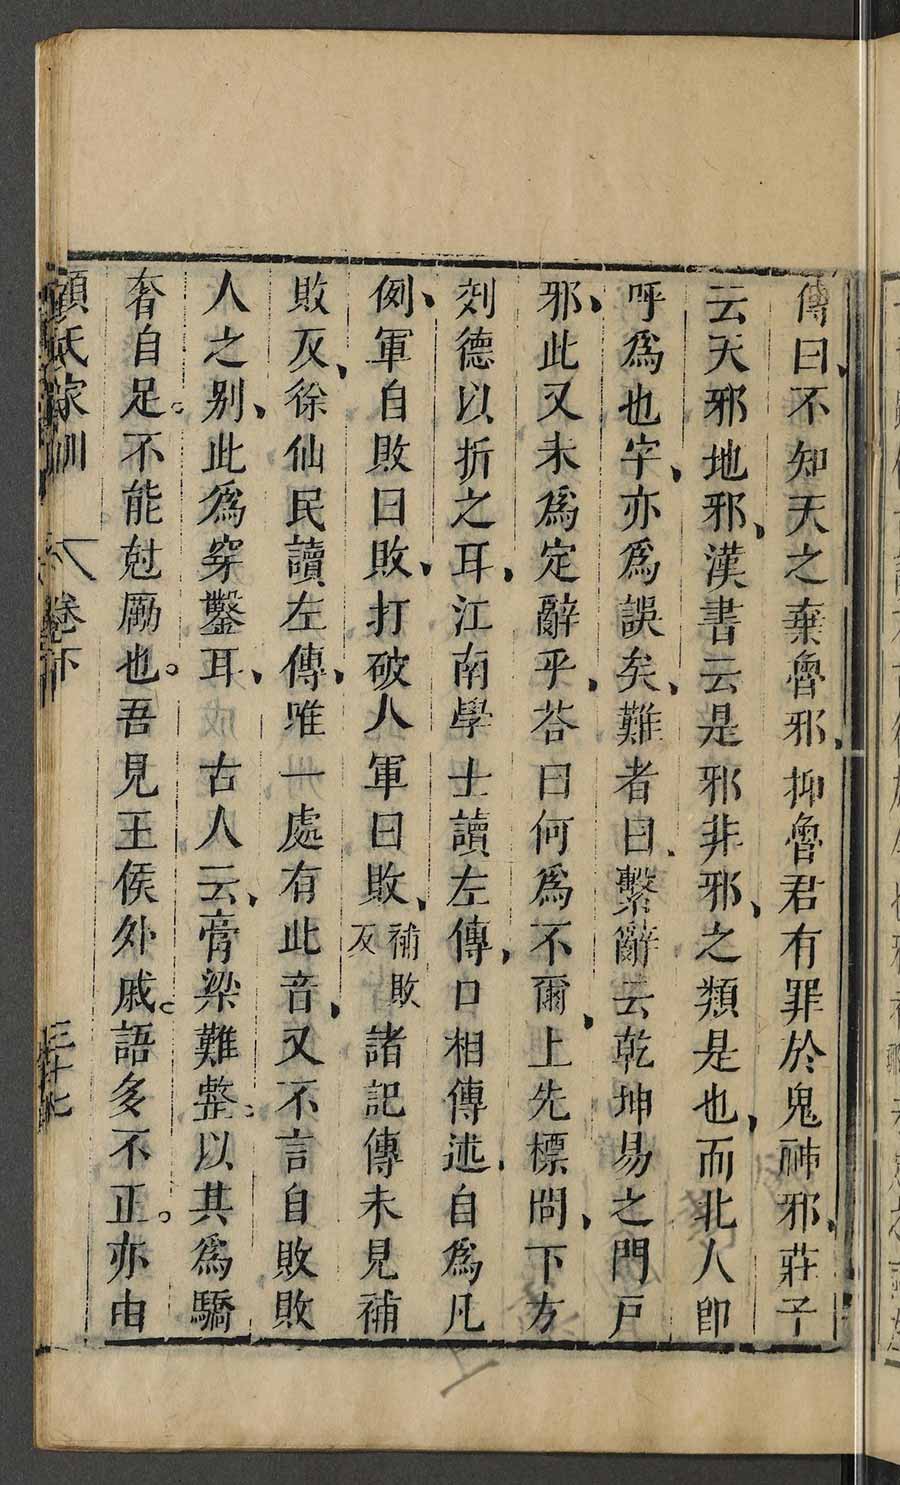 傳曰不知天之棄魯邪抑魯君有罪於鬼神邪莊子
云天邪地邪漢書云是邪非邪之類是也而北人卽
呼爲也字亦爲誤矣難者曰繫辭云乾坤易之門戶
邪此又未爲定辭乎荅曰何爲不爾上先標問下方
列德以折之耳江南學士讀左傳口相傳述自爲凡
例軍自敗曰敗打破人軍曰敗補敗反諸記傳未見補
敗反徐仙民讀左傳唯一處有此音又不言自敗敗
人之別此爲穿鑿耳　古人云膏粱難整以其爲驕
奢自足不能尅厲也吾見王侯外戚語多不正亦由
顏氏家訓　卷下　三十七